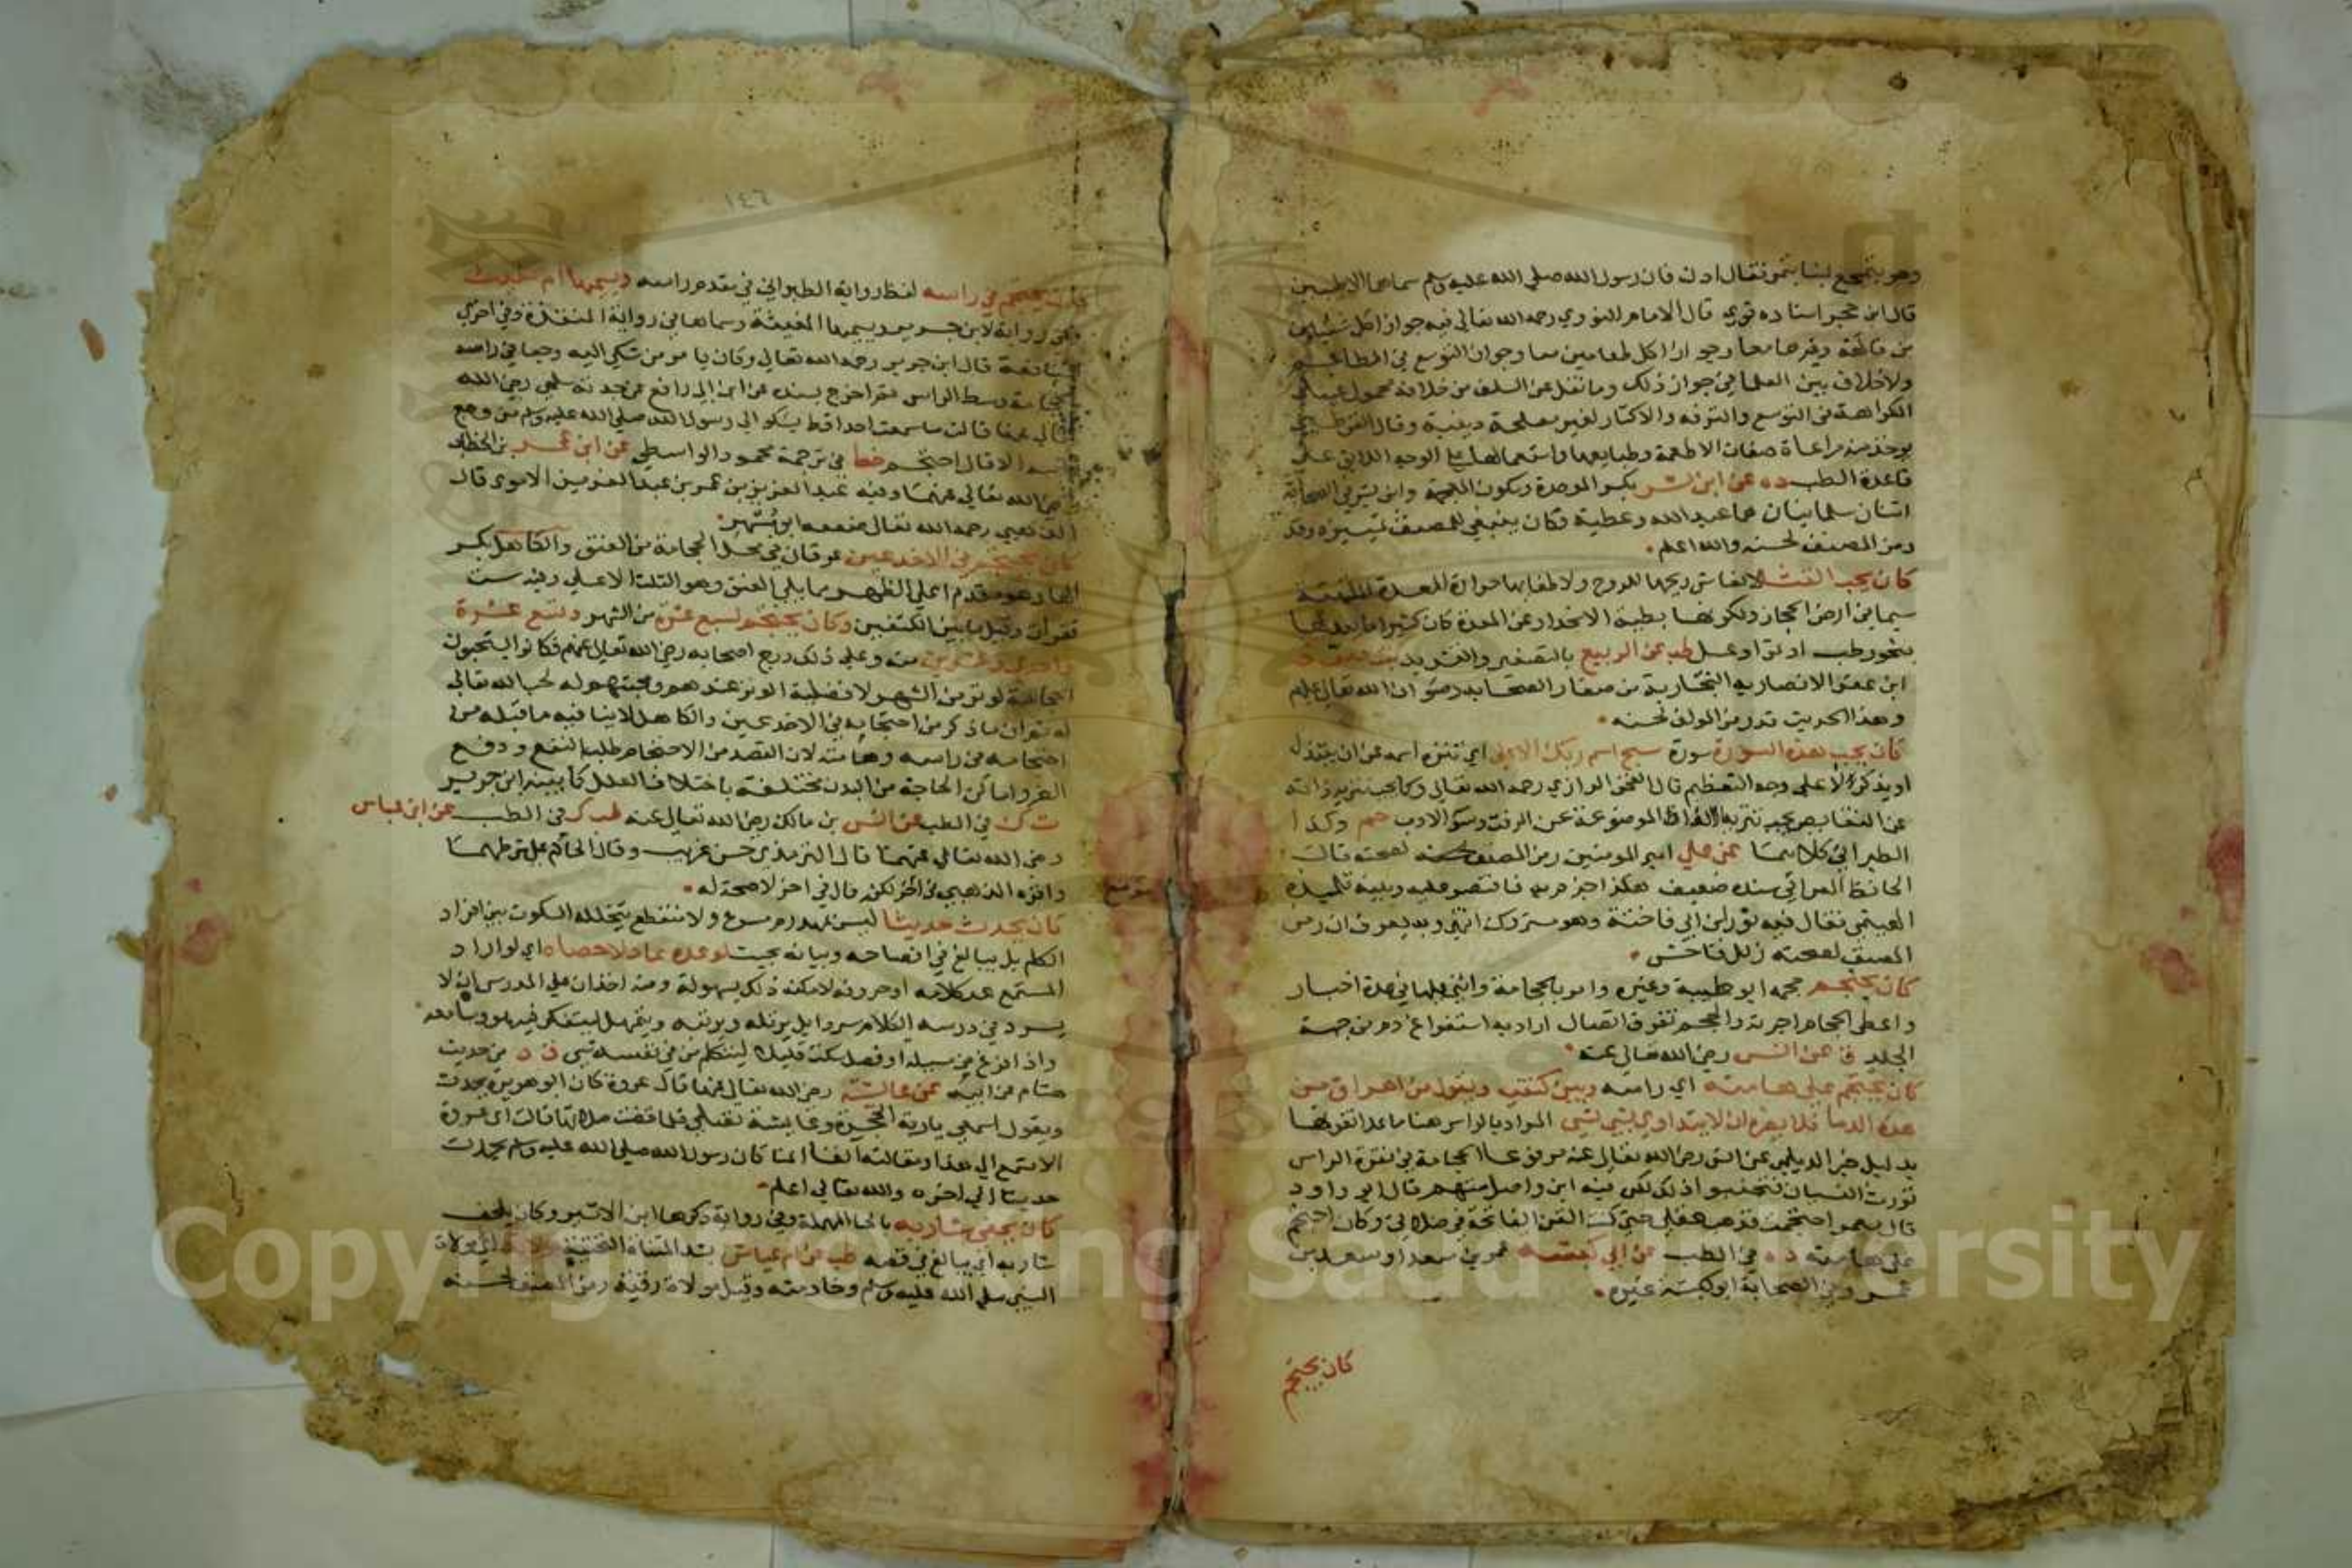 وهو يتمجع لبنا بتمر فقال ادن فان رسول الله صلى الله عليه وسلم سماهما الاطيبين
قال ابن حجر اسناده قوي قال الامام النووي رحمه الله تعالى فيه جواز اكل شيئين
من فاكهة وغيرهما معا وجواز اكل طعامين معا وجواز التوسع في المطاعم
ولا خلاف بين العلما في جواز ذلك وما نقل عن السلف من خلافه محمول على
الكراهة في التوسع والترفه والاكثار لغير مصلحة دينية وقال القرطبي
يوخذ منه مراعاة صفات الاطعمة وطبايعها واستعمالها على الوجه اللائق على
قاعدة الطب ده عن ابني بسر بكسر الموحدة وسكون المهملة وابن بسر في الصحابة
اثنان سلميان هما عبد الله وعطية فكان ينبغي للمصنف تمييزه وقد
رمز المصنف لحسنه والله اعلم
كان يحب القثا لانعاش ريحها للروح ولاطفايها حرارة المعدة الملتهبة
سيما في ارض الحجاز ولكونها بطيئة الانحدار عن المعدة كان كثيرا ما يعدلها
بنحو رطب او تمر او عسل طب عن الربيع بالتصغير والتشديد بنت معوذ
ابن عفرا الانصارية النجارية من صغار الصحابة رضوان الله تعالى عليهم
وهذا الحديث قد رمز المولف لحسنه
كان يحب هذه السورة سورة سبح اسم ربك الاعلى اي تنزه اسمه عن ان يبتذل
او يذكر الا على وجه التعظيم قال الفخر الرازي رحمه الله تعالى وكما يجب تنزيه ذاته
عن النقايص يجب تنزيه الالفاظ الموضوعة عن الرفث وسو الادب حم وكذا
الطبراني كلاهما عن علي امير المومنين رمز المصنف لصحته قال
الحافظ العراقي سنده ضعيف هكذا جزم به فاقتصر عليه وبينه تلميذه
الهيتمي فقال فيه ثوير ابن ابي فاختة وهو متروك انتهى وبه يعرف ان رمز
المصنف لصحته زلل فاحش
كان يحتجم حجمه ابو طيبة وغيره وامر بالحجامة واثنى عليها في عدة اخبار
واعطى الحجام اجرته والحجم تفرق اتصال اراديه استفراغ دم من جهة
الجلد ق عن انس رضي الله تعالى عنه
كان يحتجم على هامته اي راسه وبين كتفيه ويقول من اهراق من
هذه الدما فلا يضره ان لا يتداوى بشي لشي المراد بالراس هنا ما عدا نقرتها
بدليل خبر الديلمي عن انس رضي الله تعالى عنه مرفوعا الحجامة في نقرة الراس
تورث النسيان فتجنبوا ذلك لكن فيه ابن واصل متهم قال ابو داود
قال معمر احتجمت فذهب عقلي حتى كنت القن الفاتحة في صلاتي وكان احتجم
على هامته ده في الطب عن ابي كبشة عمر بن سعد او سعد بن
عمر وفي الصحابة ابو كبشة غيره
كان يحتجم
١٤٦
كان يحتجم في راسه لفظ رواية الطبراني في مقدم راسه ويسميها ام مغيث
وفي رواية لابن جرير ويسميها المغيثة وسماها في رواية المنقذة وفي اخرى
النافعة قال ابن جرير رحمه الله تعالى وكان يامر من شكى اليه وجعا في راسه
بالحجامة وسط الراس ثم اخرج بسنده عن ابن ابي رافع عن جدته سلمى رضي الله
تعالى عنها قالت ما سمعت احدا قط يشكو الى رسول الله صلى الله عليه وسلم من وجع
راسه الا قال احتجم خط في ترجمة محمود الواسطي عن ابن عمر بن الخطاب
رضي الله تعالى عنهما وفيه عبد العزيز بن عمر بن عبد العزيز الاموي قال
الذهبي رحمه الله تعالى ضعفه ابو مسهر
كان يحتجم في الاخدعين عرقان في محل الحجامة من العنق والكاهل بكسر
الها وهو مقدم اعلى الظهر مما يلي العنق وهو الثلث الاعلى وفيه ست
فقرات وقيل ما بين الكتفين وكان يحتجم لسبع عشرة من الشهر وتسع عشرة
واحدى وعشرين منه وعلى ذلك درج اصحابه رضي الله تعالى عنهم فكانوا يستحبون
الحجامة لوتر من الشهر لافضلية الوتر عندهم ومحبتهم له لحب الله تعالى
له ثم ان ما ذكر من احتجامه في الاخدعين والكاهل لا ينافيه ما قبله من
احتجامه في راسه وهامته لان القصد من الاحتجام طلب النفع ودفع
الضر واماكن الحاجة من البدن مختلفة باختلاف العلل كما بينه ابن جرير
ت ك في الطب عن انس بن مالك رضي الله تعالى عنه طب ك في الطب عن ابن عباس
رضي الله تعالى عنهما قال الترمذي حسن غريب وقال الحاكم على شرطهما
واقره الذهبي في اخر لكنه قال في اخر لا صحة له
كان يحدث حديثا ليس بمهذرم مسرع ولا متقطع يتخلله السكوت بين افراد
الكلم بل يبالغ في افصاحه وبيانه بحيث لو عده عاد لاحصاه اي لو اراد
المستمع عد كلامه او حروفه لامكنه ذلك بسهولة ومنه اخذ ان على المدرس ان لا
يسرد في درسه الكلام سردا بل يرتله ويرتبه ويتمهل ليتفكر فيه هو وسامعه
واذا فرغ من مسيلة او فصل سكت قليلا ليتكلم من في نفسه شي ق د من حديث
هشام عن ابيه عن عايشة رضي الله تعالى عنها قال عروة كان ابو هريرة يحدث
ويقول اسمعي يا ربة الحجرة وعايشة تصلي فلما قضت صلاتها قالت اي عروة
الا تسمع الى هذا ومقالته انفا انما كان رسول الله صلى الله عليه وسلم يحدث
حديثا الى اخره والله تعالى اعلم
كان يحفي شاربه بالحا المهملة وفي رواية ذكرها ابن الاثير وكان يلحف
شاربه اي يبالغ في قصه طب عن ام عياش بشد المثناة التحتية مولاة
النبي صلى الله عليه وسلم وخادمته وقيل مولاة رقية رمز المصنف لحسنه
Copyright © King Saud University